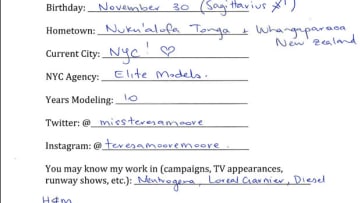 Birthday: November 30 (Sagittarius
Hometown: Nuku'alofa Tonga + Whangaparaoa
New Zealand
Current City: NYC!
NYC Agency: Elite Models.
Years Modeling: 10
Twitter: @ missteresamoore
Instagram: @ teresamooremoore.
You may know my work in (campaigns, TV appearances,
runway shows, etc.): Neutrogena, Loreal Garnier, Diesel
H&M